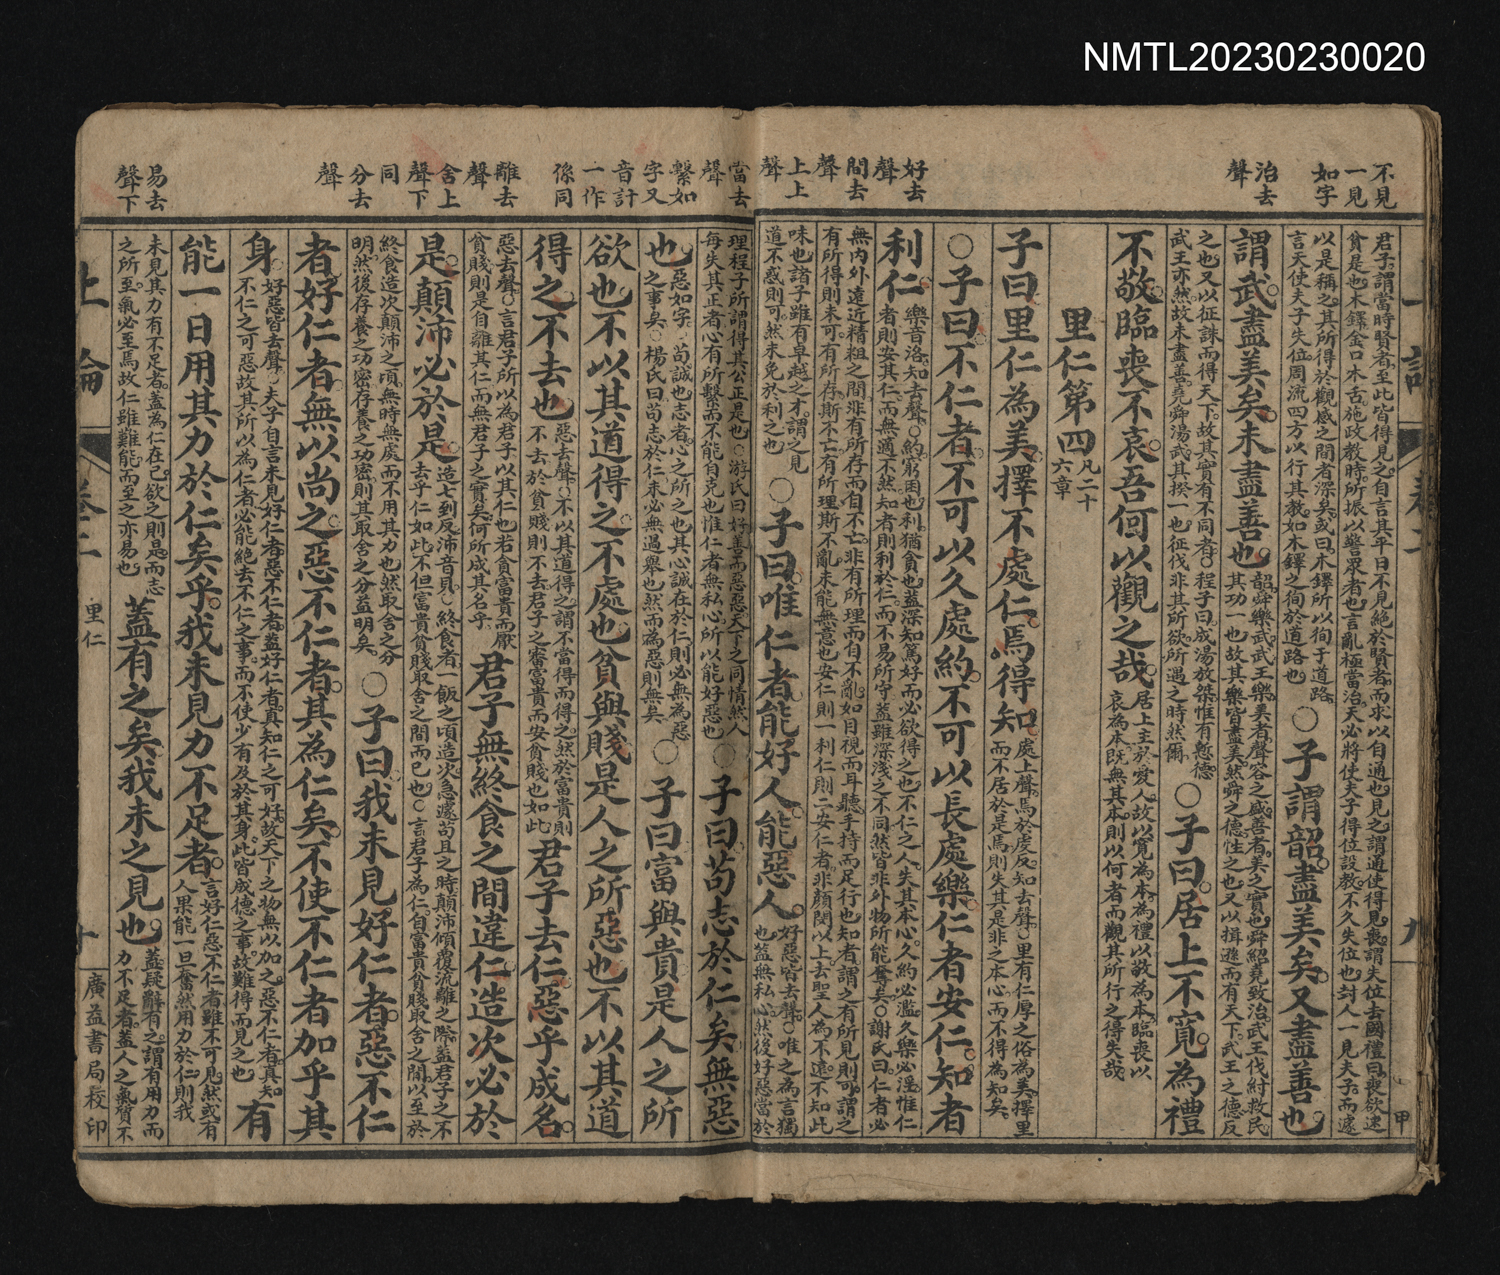 NMTL20230230020
不見
一見
如字
治去
聲
好去
聲
間去
聲
上上
聲
當去
聲
繫如
字又
音計
一作
係同
離去
聲
舍上
聲下
同
分去
聲
易去
聲下
君子謂當時賢者至此皆得見之自言其平日不見絕於賢者而求以自通也見之謂通使得見喪謂失位去國禮曰喪欲速
貧是也木鐸金口木舌施政教時所振以警眾者也言亂極當治天必將使夫子得位設教不久失位也封人一見夫子而遽
以是稱之其所得於觀感之間者深矣或曰木鐸所以徇于道路
言天使夫子失位周流四方以行其教如木鐸之徇於道路也
○子謂韶盡美矣又盡善也
謂武盡美矣未盡善也韶舜樂武武王樂美者聲容之盛善者美之實也舜紹堯致治武王伐紂救民
其功一也故其樂皆盡美然舜之德性之也又以揖遜而有天下武王之德反
之也又以征誅而得天下故其實有不同者○程子曰成湯放桀惟有慙德
武王亦然故未盡善堯舜湯武其揆一也征伐非其所欲所遇之時然爾
○子曰居上不寬為禮
不敬臨喪不哀吾何以觀之哉居上主於愛人故以寬為本為禮以敬為本臨喪以
哀為本既無其本則以何者而觀其所行之得失哉
里仁第四凡二十
六章
子曰里仁為美擇不處仁焉得知處上聲焉於虔反知去聲○里有仁厚之俗為美擇里
而不居於是焉則失其是非之本心而不得為知矣
○子曰不仁者不可以久處約不可以長處樂仁者安仁知者
利仁樂音洛知去聲○約窮困也利猶貪也蓋深知篤好而必欲得之也不仁之人失其本心久約必濫久樂必淫惟仁
者則安其仁而無適不然知者則利於仁而不易所守蓋雖深淺之不同然皆非外物所能奪矣○謝氏曰仁者心
無內外遠近精粗之間非有所存而自不亡非有所理而自不亂如目視而耳聽手持而足行也知者謂之有所見則可謂之
有所得則未可有所存斯不亡有所理斯不亂未能無意也安仁則一利仁則二安仁者非顏閔以上去聖人為不遠不知此
味也諸子雖有卓越之才謂之見
道不惑則可然未免於利之也
○子曰唯仁者能好人能惡人好惡皆去聲○唯之為言獨
也蓋無私心然後好惡當於
理程子所謂得其公正是也○游氏曰好善而惡惡天下之同情然人
每失其正者心有所繫而不能自克也惟仁者無私心所以能好惡也
○子曰苟志於仁矣無惡
也惡如字○苟誠也志者心之所之也其心誠在於仁則必無為惡
之事矣○楊氏曰苟志於仁未必無過舉也然而為惡則無矣
○子曰富與貴是人之所
欲也不以其道得之不處也貧與賤是人之所惡也不以其道
得之不去也惡去聲○不以其道得之謂不當得而得之然於富貴則
不去於貧賤則不去君子之審富貴而安貧賤也如此
君子去仁惡乎成名
惡去聲○言君子所以為君子以其仁也若貪富貴而厭
貧賤則是自離其仁而無君子之實矣何所成其名乎
君子無終食之間違仁造次必於
是顛沛必於是造七到反沛音貝○終食者一飯之頃造次急遽苟且之時顛沛傾覆流離之際蓋君子之不
去乎仁如此不但富貴貧賤取舍之間而已也○言君子為仁自富貴貧賤取舍之間以至於
終食造次顛沛之頃無時無處而不用其力也然取舍之分
明然後存養之功密存養之功密則其取舍之分益明矣
○子曰我未見好仁者惡不仁
者好仁者無以尚之惡不仁者其為仁矣不使不仁者加乎其
身好惡皆去聲○夫子自言未見好仁者惡不仁者蓋好仁者真知仁之可好故天下之物無以加之惡不仁者真知
不仁之可惡故其所以為仁者必能絕去不仁之事而不使少有及於其身此皆成德之事故難得而見之也
有
能一日用其力於仁矣乎我未見力不足者言好仁惡不仁者雖不可見然或有
人果能一旦奮然用力於仁則我
未見其力有不足者蓋為仁在己欲之則是而志
之所至氣必至焉故仁雖難能而至之亦易也
蓋有之矣我未之見也蓋疑辭有之謂有用力而
力不足者蓋人之氣質不
上論
卷二
里仁
十
廣益書局校印
九
甲